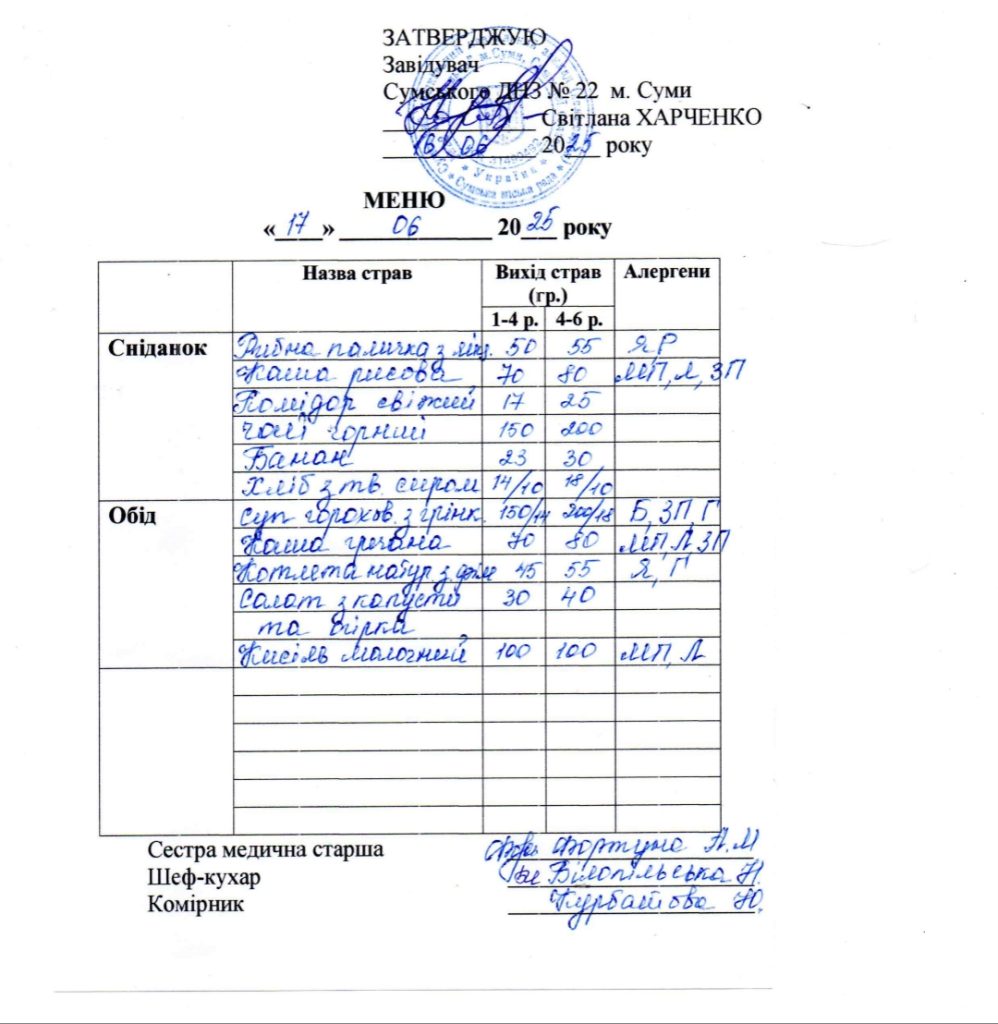 ЗАТВЕРДЖУЮ
Завідувач
Сумського ДНЗ № 22 м. Суми
Світлана ХАРЧЕНКО
16 06 2025 року
МЕНЮ
«17» 06 2025 року
Назва страв Вихід страв (гр.) Алергени
1-4 р. 4-6 р.
Сніданок Рибна паличка з 50 55 Я, Р
Каша рисова 70 80 МП, Л, ЗП
Помідор свіжий 17 25
Чай чорний 150 200
Банан 23 30
Хліб з тв. сиром 14/10 18/10
Обід Суп горохов. з грінк. 150/14 200/18 Б, ЗП, Г
Каша гречана 70 80 МП, Л, ЗП
Котлета натур з 45 55 Я, Г
Салат з капусти 30 40
та огірка
Кисіль молочний 100 100 МП, Л
Сестра медична старша Фортуна А.М
Шеф-кухар Білопільська Н.
Комірник Курбатова Ю.